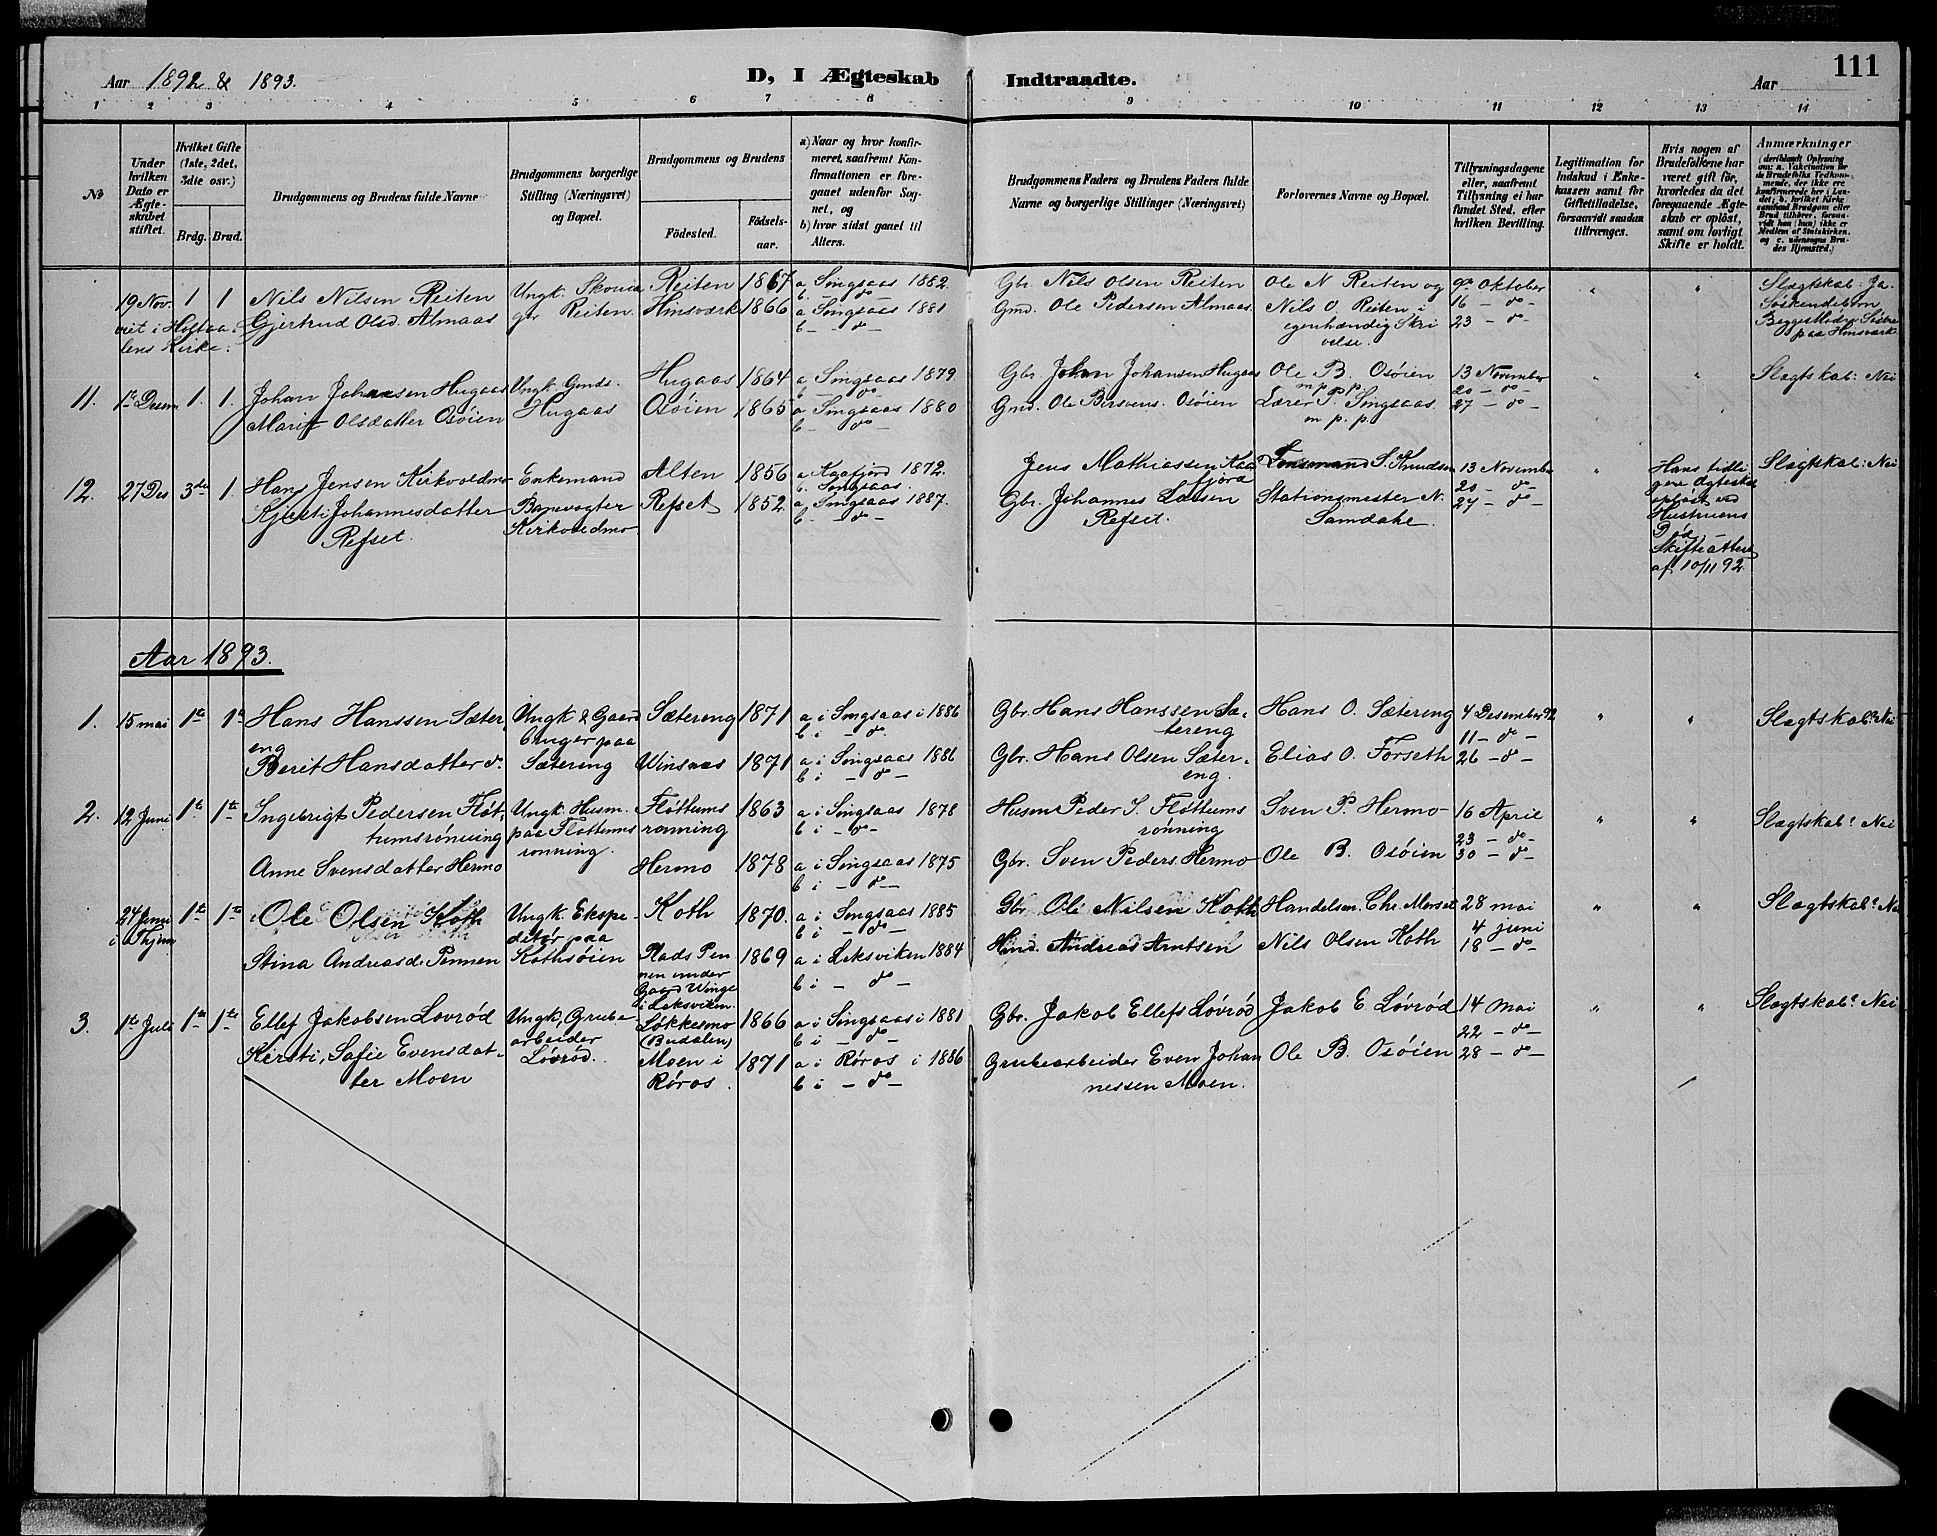 Aar 1892 & 1893.
D, I Ægteskab Indtraadte.
Aar
111
1 2 3 4 5 6 7 8 9 10 11 12 13 14
No
Under hvilken Dato er Ægteskabet stiftet.
Hvilket Gifte (1ste, 2det, 3die osv.)
Brdg. Brud.
Brudgommens og Brudens fulde Navne
Brudgommens borgerlige Stilling (Næringsvei) og Bopæl.
Brudgommens og Brudens
Fødested.
Fødselsaar.
a) Naar og hvor konfirmeret, saafremt Konfirmationen er foregaaet udenfor Sognet, og
b) hvor sidst gaaet til Alters.
Brudgommens Faders og Brudens Faders fulde Navne og borgerlige Stillinger (Næringsvei)
Forlovernes Navne og Bopæl.
Tillysningsdagene eller, saafremt Tillysning ei har fundet Sted, efter hvilken Bevilling.
Legitimation for Indskud i Enkekassen samt for Giftetilladelse, forsaavidt saadan tiltrænges.
Hvis nogen af Brudefolkene har været gift før, hvorledes da det foregaaende Ægteskab er opløst, samt om lovligt Skifte er holdt.
Anmærkninger
19 Nov. 1 1 Nils Nilsen Reiten Ungk. Reiten 1867 a Singsaas 1882.
viet i Gjertrud Olsd. Almaas Reiten. 1866 a Singsaas 1881
Kirke. b — do —
Gbr. Nils Olsen Reiten Ole N Reiten og Oktober
Gmd. Ole Pedersen Almaas Nils O. Reiten i 16 — do —
egenhændig Skri 23 — do —
velse.
Slægtskab: Ja.
Søskendebørn
11. Desem 1. 1. Johan Johansen Hugaas Ungk. Hugaas 1864 a Singsaas 1879
Marit Olsdatter Osøien Hugaas Osøien 1865 a Singsaas 1880
b — do —
Gbr. Johan Johansen Hugaas Ole B. Osøien 13 November
m. p. p. 20 — do —
Gmd. Ole Osøien Lærer P. Singsaas 27 — do —
m. p. p.
Slægtskab: Nei
12. 27 Des 3die 1. Hans Jensen Kirkvoldmo Enkemand Alten 1856 a Kaafjord 1872.
b. Singsaas.
Johannesdatter Banevogter Refset 1852 a Singsaas 1887.
Refset. Kirkvoldmo. b — do —
Jens Mathiassen Kaa S. Knudsen 13 November
fjord 20 — do —
Gbr. Johannes Larsen Stationsmester N. 27 — do —
Refset. Samdahl.
Hans tidli
gere Ægteskab
opløst ved
Hustruens
Død. —
Skifteattest
af 10/11 92.
Slægtskab: Nei
Aar 1893.
1. 15 mai 1te 1te Hans Hanssen Sæter Ungk & Gaard Sætereng 1871 a i Singsaas i 1886
eng bruger paa b i — do —
Berit Hansdatter do. Sætereng Winsnes 1871 a i Singsaas 1886
b i — do —
Gbr. Hans Hanssen Sæ- Hans O. Sætereng 4 Desember 92
tereng 11 — do —
Gbr. Hans Olsen Sæter- Elias O. Forseth 26 — do —
eng.
Slægtskab? Nei
2. 12 Juni 1te 1te Ingebrigt Pedersen Fløt- Ungk. Husm. Fløttums 1863 a i Singsaas 1878
tumsrønning paa Fløttums rønning b i — do —
rønning.
Anne Svensdatter Hermo Hermo 1878 a i Singsaas 1875
b i — do —
Husm Peder I. Fløttums Sven P. Hermo 16 April
rønning 23 — do —
Gbr. Sven Peders. Hermo Ole B. Osøien 30 — do —
Slægtskab? Nei
24 Juni 1te 1te Ole Olsen Koth Ungk. Ekspe- Koth 1870. a i Singsaas 1885
i Thjem ditør paa b i — do —
Stina Andreasd. Pennen Kothsøien Plads Pen 1869 a i Leksviken 1884
nen under b i — do —
Gaard Winge
i Leksviken.
Gbr Ole Nilsen Koth Handelsm. Chr. Morset 28 mai
4 juni
Andreas Arntsen Nils Olsen Koth 18 — do —
Slægtskab? Nei
3. 1te Juli 1te 1te Ellef Jakobsen Løvrød Ungk, Grube- Løkkesmo 1866 a i Singsaas i 1881
arbeider (Budalen) b i — do —
Kirsti, Sofie Evensdat- Løvrød. Moen i 1871 a i Røros i 1886
ter Moen Røros. b i — do —
Gbr. Jakob Ellefs Løvrød Jakob E. Løvrød 14 mai
22 — do —
Grubearbeider Even Johan Ole B. Osøien 28 — do —
nessen Moen.
Slægtskab? Nei